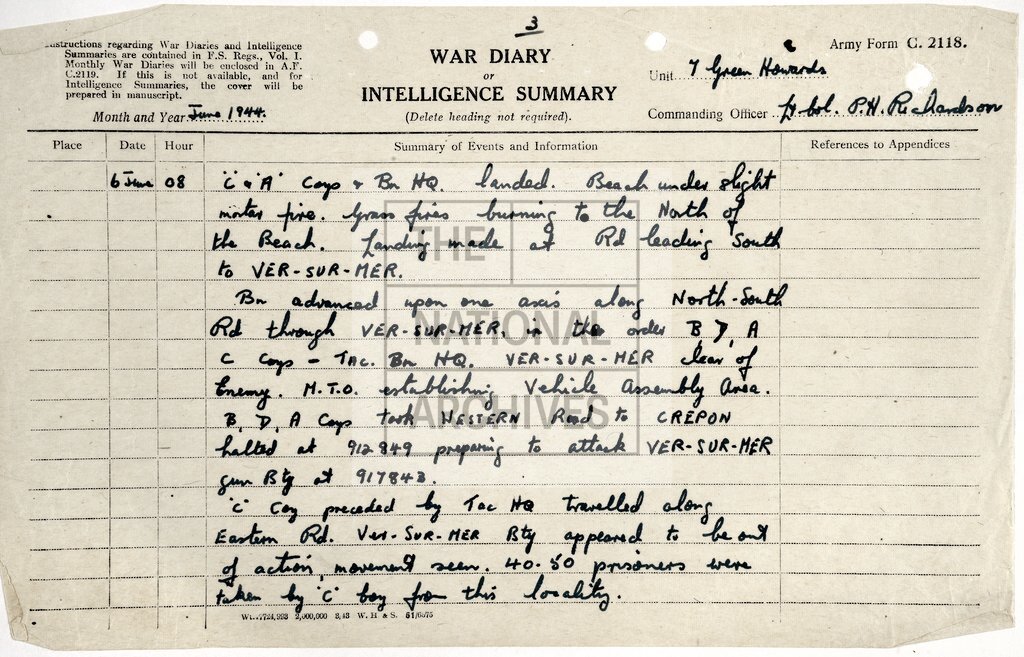 3
Instructions regarding War Diaries and Intelligence
Summaries are contained in F.S. Regs., Vol. I.
Monthly War Diaries will be enclosed in A.F.
C.2119. If this is not available, and for
Intelligence Summaries, the cover will be
prepared in manuscript.
Month and Year June 1944.
WAR DIARY
or
INTELLIGENCE SUMMARY
(Delete heading not required).
Army Form C. 2118.
Unit 7 Green Howards
Commanding Officer Lt. Col. P.H. Richardson
Place Date Hour Summary of Events and Information References to Appendices
6 June 08 "C" & "A" Coys & Bn HQ. landed. Beach under slight
mortar fire. Grass fires burning to the North of
the Beach. Landing made at Rd leading South
to VER-SUR-MER.
Bn advanced upon one axis along North-South
Rd through VER-SUR-MER, in the order B, D, A
C Coys - TAC. Bn HQ. VER-SUR-MER clear of
Enemy. M.T.O. establishing Vehicle Assembly Area.
B, D, A Coys took WESTERN Road to CREPON
halted at 912849 preparing to attack VER-SUR-MER
gun Bty at 917843.
"C" Coy preceded by Tac HQ travelled along
Eastern Rd. VER-SUR-MER Bty appeared to be out
of action, movement seen. 40-50 prisoners were
taken by "C" Coy from this locality.
Wt.. 7724,993 2,000,000 8,43 W. H & S. 51/6375
THE
NATIONAL
ARCHIVES